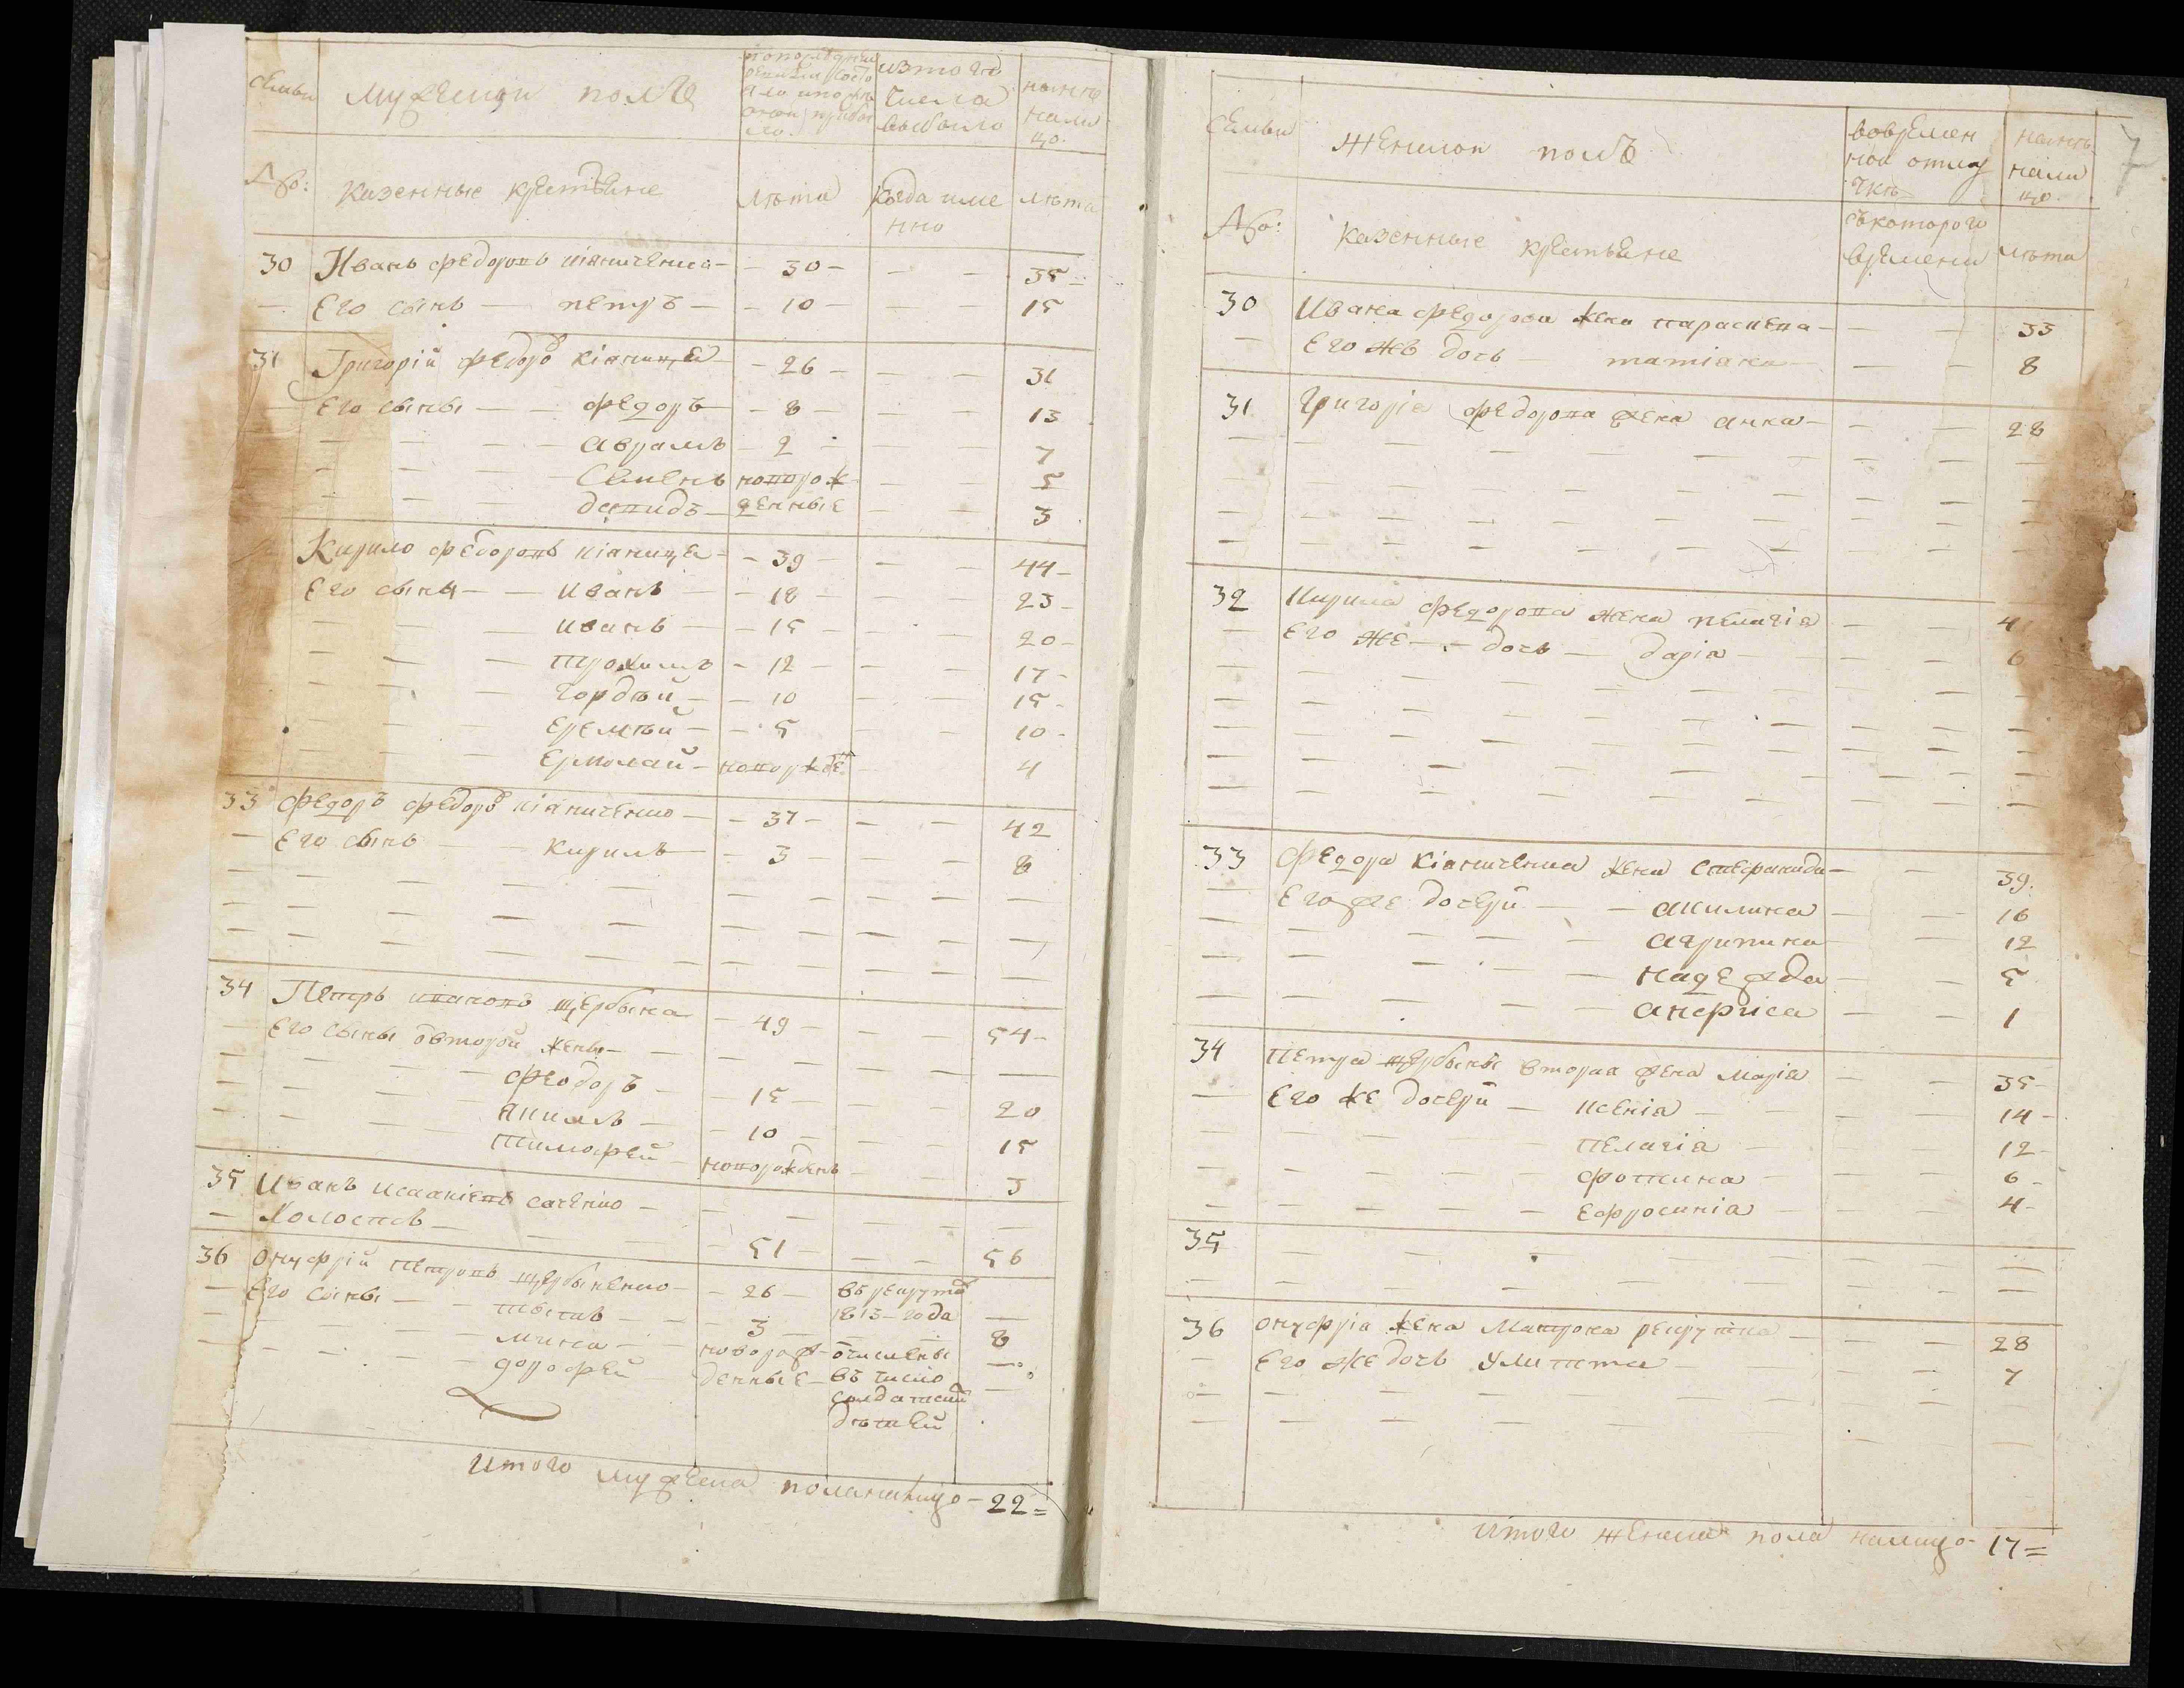 семьи мужеской полъ по последней ревизии состояло и после оной прибыло изтого числа выбыло ныне на лицо
№: казенные крестьяне лѣта когда именно лѣта
30 Иванъ Федоровъ кіяниченко 30 35
Его сынъ петръ 10 15
31 Григорій Федоро кіяница 26 31
Его сыны федоръ 8 13
аврамъ 2 7
Семенъ новорож 5
давидъ денные 3
Кирило федоровъ кіяница 39 44
Его сыны иванъ 18 23
иванъ 15 20
прохимъ 12 17
гордѣй 10 15
еремѣй 5 10
ермолай новорожде 4
33 федоръ федоро кіяниченко 37 42
Его сынъ кирилъ 3 8
34 Петръ щербына 49 54
Его сыны от второй жены
феодоръ 15 20
якимъ 10 15
тимофей новорожденъ 3
35 Иванъ саченко
Холостъ 51 56
36 онуфрій петровъ щербыненко 26 въ рекруты
Его сыны 3 1813 года 8
мина новорож отчислены
дорофей денные въ число
солдатских
дѣтей
Итого мужеска пола налицо 22
7
семьи женской полъ вовремен ной отлу чкѣ нынѣ нали цо
№: казенные крестьяне съ котораго времени лѣта
30 Ивана федорова жена параскева 33
Его же дочь татіана 8
31 григорія федорова жена анна 28
32 Кирила федорова жена пелагія 4
Его же дочь дарія 6
33 Федора кіяниченка жена степанида 39
Его же дочери акилина 16
агрипина 12
надежда 5
анфиса 1
34 Петра щербыны вторая жена марія 35
Его же дочери ксенія 14
пелагія 12
фотина 6
ефросинія 4
35
36 онуфрія жена матрона рекрутка 28
Его же дочь улита 7
Итого женска пола налицо 17